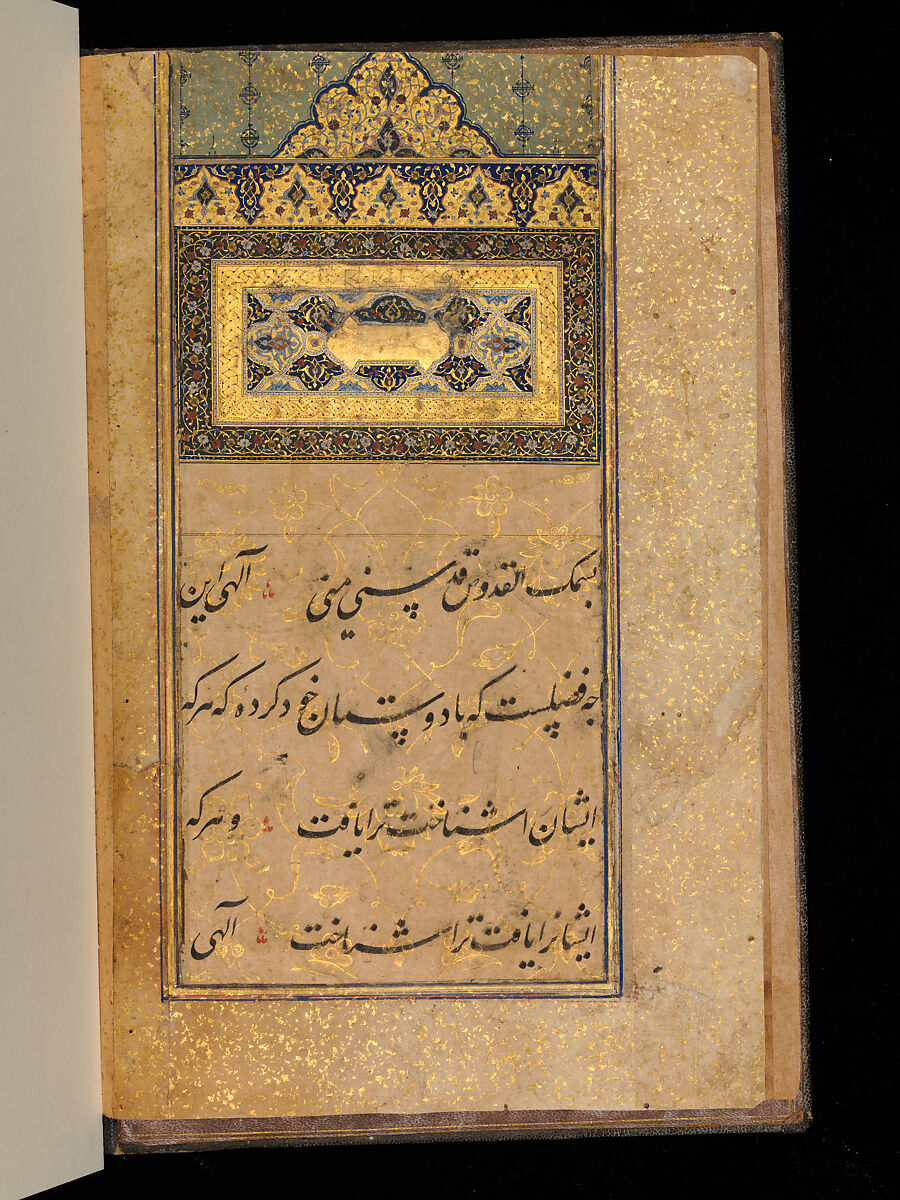 بسمک القدوس قدسنی منی الهی این
چه فضلیست که با دوستان خود کرده که هرکه
ایشان اشناخت ترا یافت و هرکه
ایشانرا یافت ترا شناخت الهی